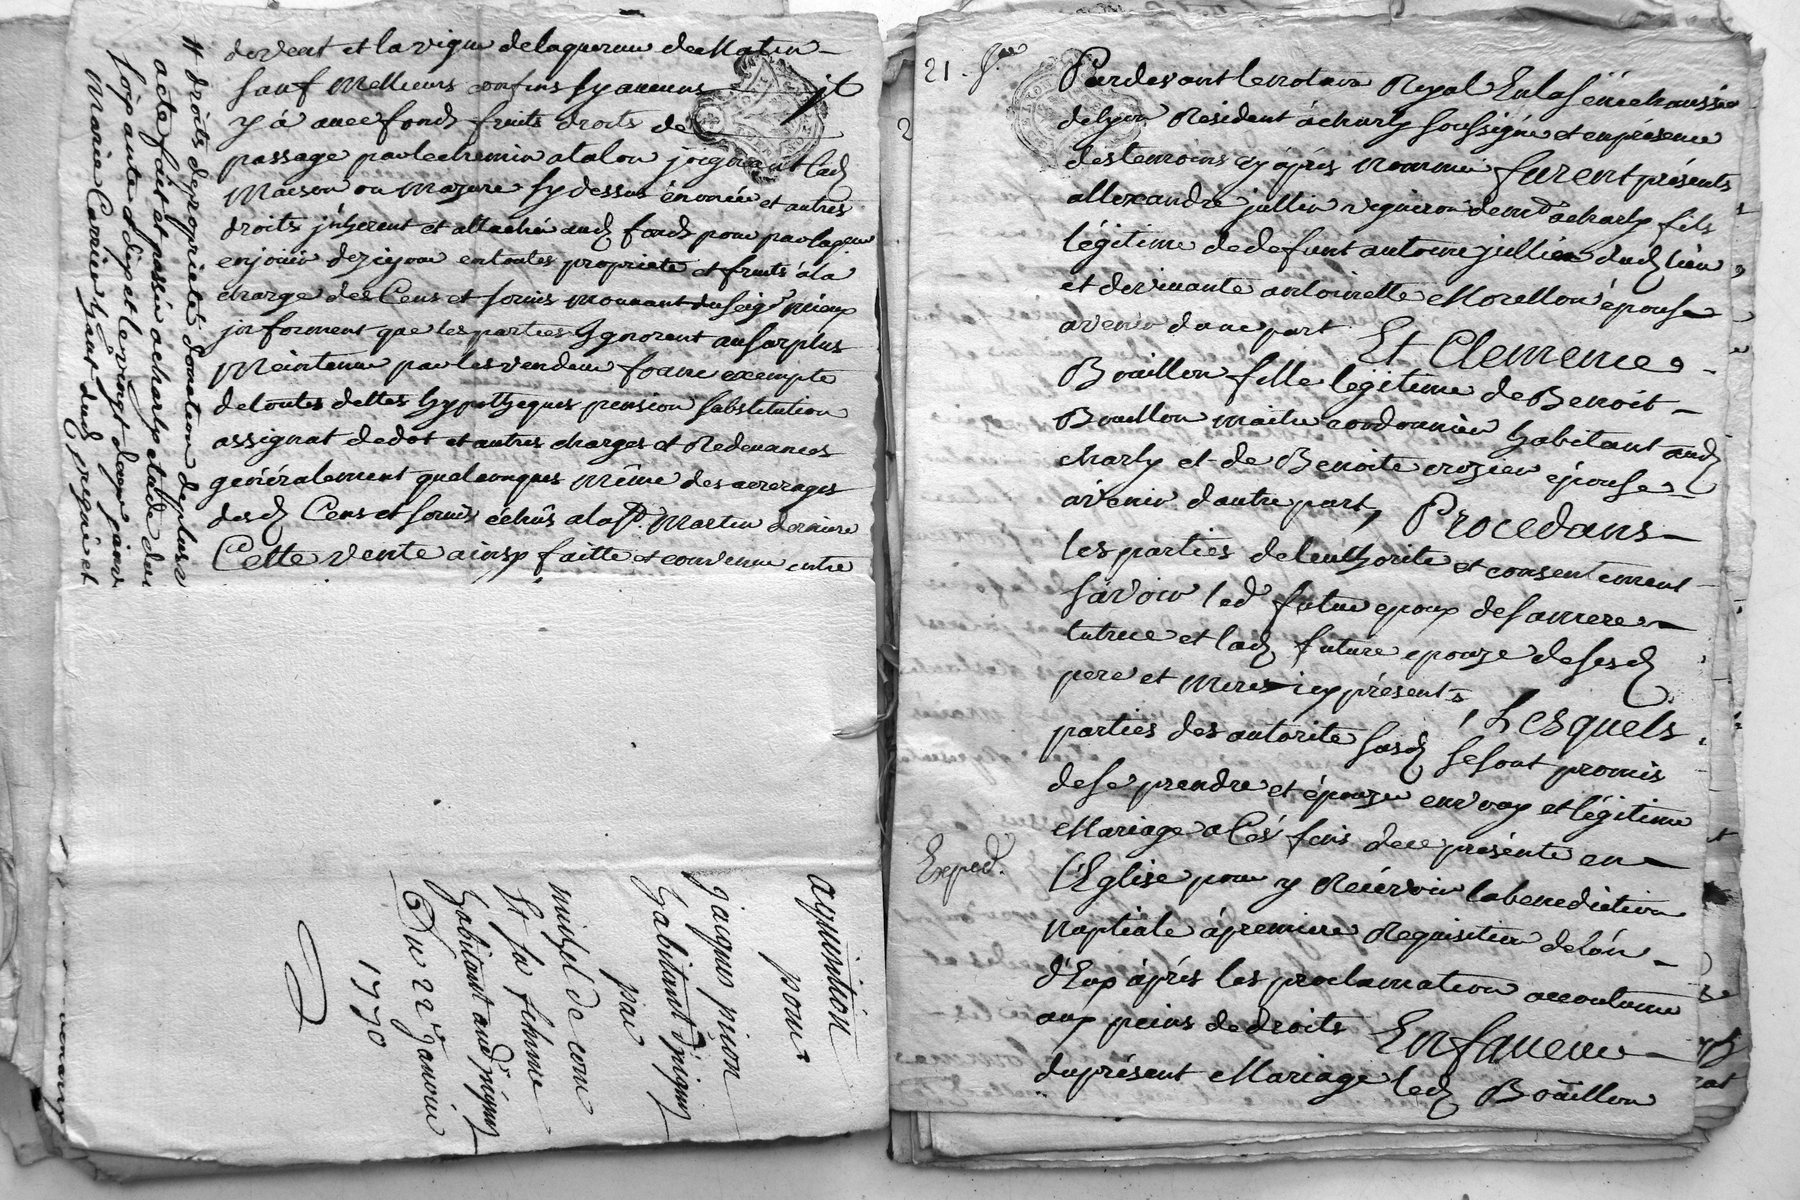 devent et la vigne de la querrue de Matin
sauf Meilleurs confins sy aucuns
y à avec fonds fruits droits de
passage par le chemin joignant lad
Maison ou Mazure sy dessus énoncée et autres
droits jnherent et attachés aud fonds pour par
en jouir dez cejour en toutes propriete et fruits àla
charge des Cens et servis mouvant du seigr mieux
jnforment que les parties Ygnorent au surplus
Meintenue par les vendeur franc exempte
de toutes dettes hypotheques pension substitution
assignat de dot et autres charges et Redevances
généralement quelconques même des arrerages
desd Cens et servis échûs ala St Martin derniere
Cette vente ainsy faitte et convenue entre
# droits de propriété donation de plus
acte fait et passée à charly etude du
soixante et dix et le vingt deux janv
Marie Carrier Gant dud pigné et
aquisition
pour
jacques pion
habitant d'pigny
par
michel de
Et sa femme
habitant aud pigny
Du 22 janvier
1770
21. Jer
Pardevant le notaire Royal En la sénéchaussée
delyon Résident àcharly soussigné et en présence
des temoins cy après nommé furent présents
allexandre jullien vigneron demt acharly fils
légitime de defunt antoine jullien dud lieu
et de vivante antoinette Morellon épouse
avenir dune part Et Clemence
Boüillon fille légitime de Benoit
Boüillon maitre cordonnier habitant aud
charly et de Benoite crozier épouse
avenir dautre part, Procedans
les parties de leuthorite et consentement
sávoir led futur epoux de sa mere
tutrice et lad future epouze de sesd
pere et mere icy présents, Lesquels
parties des autorite susd se sont promis
de se prendre et épouzer en vray et légitime
Mariage a Cés fins de ce présente en
l'Eglise pour y Récévoir la benediction
Nuptiale à premiere Requisition de lún
d'Eux áprés les proclamation accoutume
aux peins de droits En faveur
du présent Mariage led Boüillon
Exped.